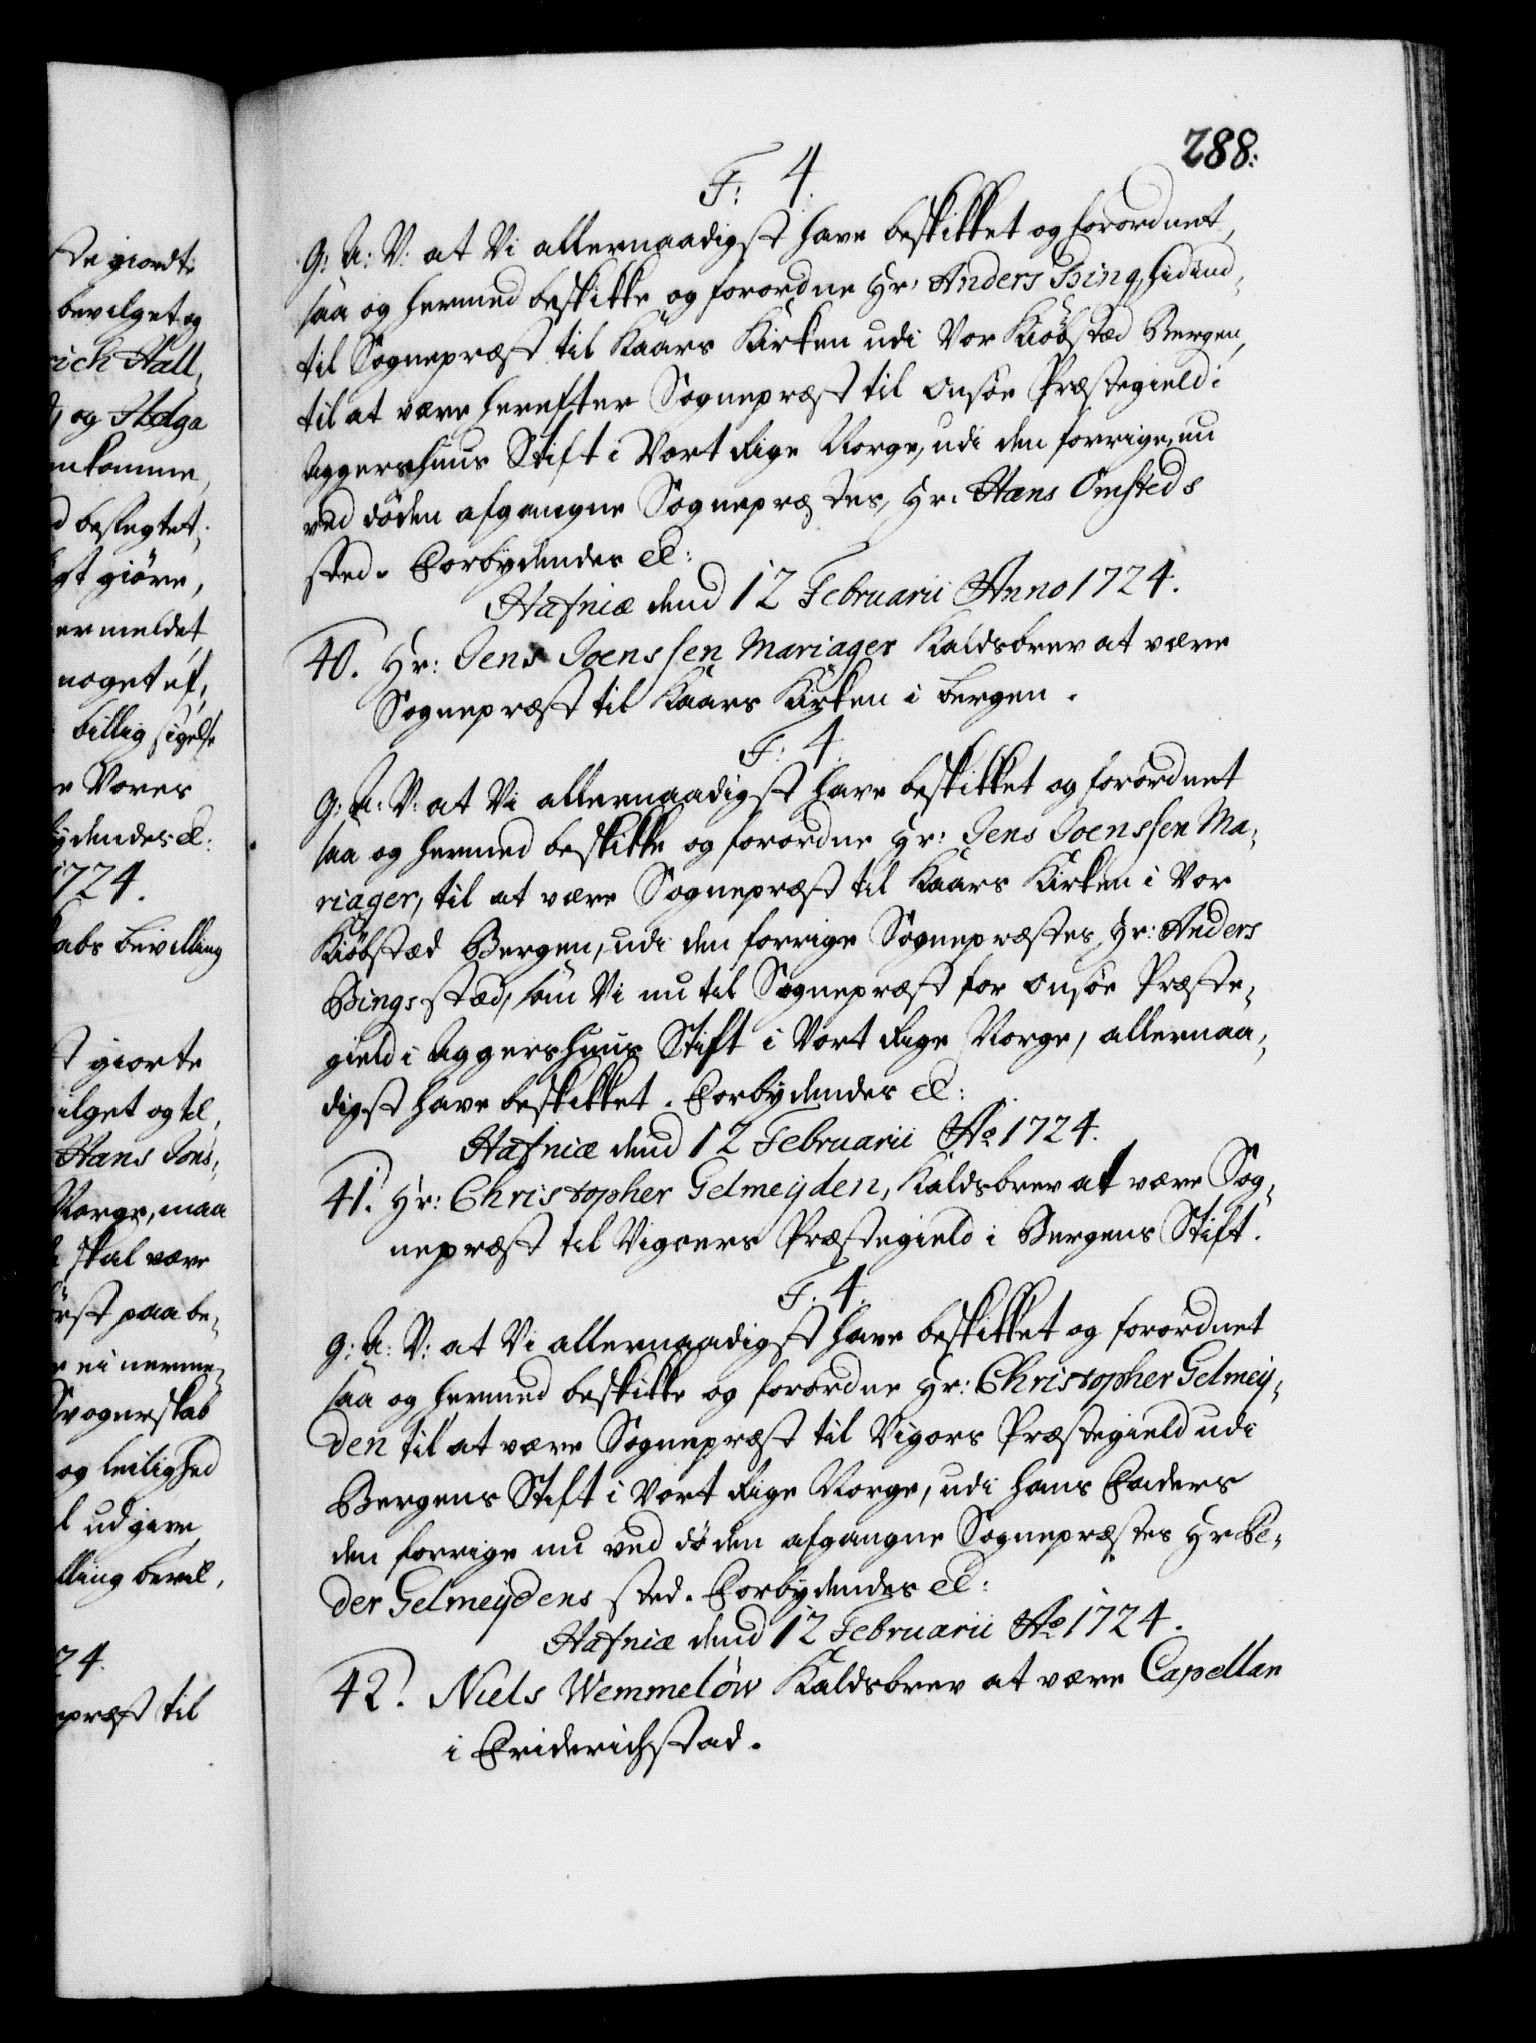 288:
F: 4.
G: A: V: at Vi allernaadigst have beskikket og forordnet,
saa og hermed beskikke og forordne Hr: Anders Bing, hidind-
til Sognepræst til Kaars Kirken udi Vor Kiöbsted Bergen,
til at være herefter Sognepræst til Onsöe Præstegield i
Aggershuus Stift i Vort Rige Norge, udi den forrige, nu
ved döden afgangne Sognepræstes, Hr: Hans Omsteds
sted. Forbydendes etc:
Hafniæ dend 12 Februarii Anno 1724.
40. Hr: Jens Joenssen Mariager Kaldsbrev at være
Sognepræst til Kaars Kirken i Bergen.
F: 4.
G: A: V: at Vi allernaadigst have beskikket og forordnet
saa og hermed beskikke og forordne Hr: Jens Joenssen Ma-
riager, til at være Sognepræst til Kaars Kirken i Vor
Kiöbstæd Bergen, udi den forrige Sognepræstes, Hr: Anders
Bings stæd, som Vi nu til Sognepræst for Onsöe Præste-
gield i Aggershuus Stift i Vort Rige Norge, allernaa-
digst have beskikket. Forbydendes etc:
Hafniæ dend 12 Februarii Ao 1724.
41. Hr: Christopher Gelmeyden, Kaldsbrev at være Sog-
nepræst til Vigöers Præstegield i Bergens Stift.
F: 4.
G: A: V: at Vi allernaadigst have beskikket og forordnet
saa og hermed beskikke og forordne Hr: Christopher Gelmey-
den til at være Sognepræst til Vigörs Præstegield udi
Bergens Stift i Vort Rige Norge, udi hans Faders
den forrige nu ved döden afgangne Sognepræstes Hr Pe-
der Gelmeydens sted. Forbydendes etc:
Hafniæ dend 12 Februarii Ao 1724.
42. Niels Wemmelöw Kaldsbrev at være Capellan
i Friderichstad.